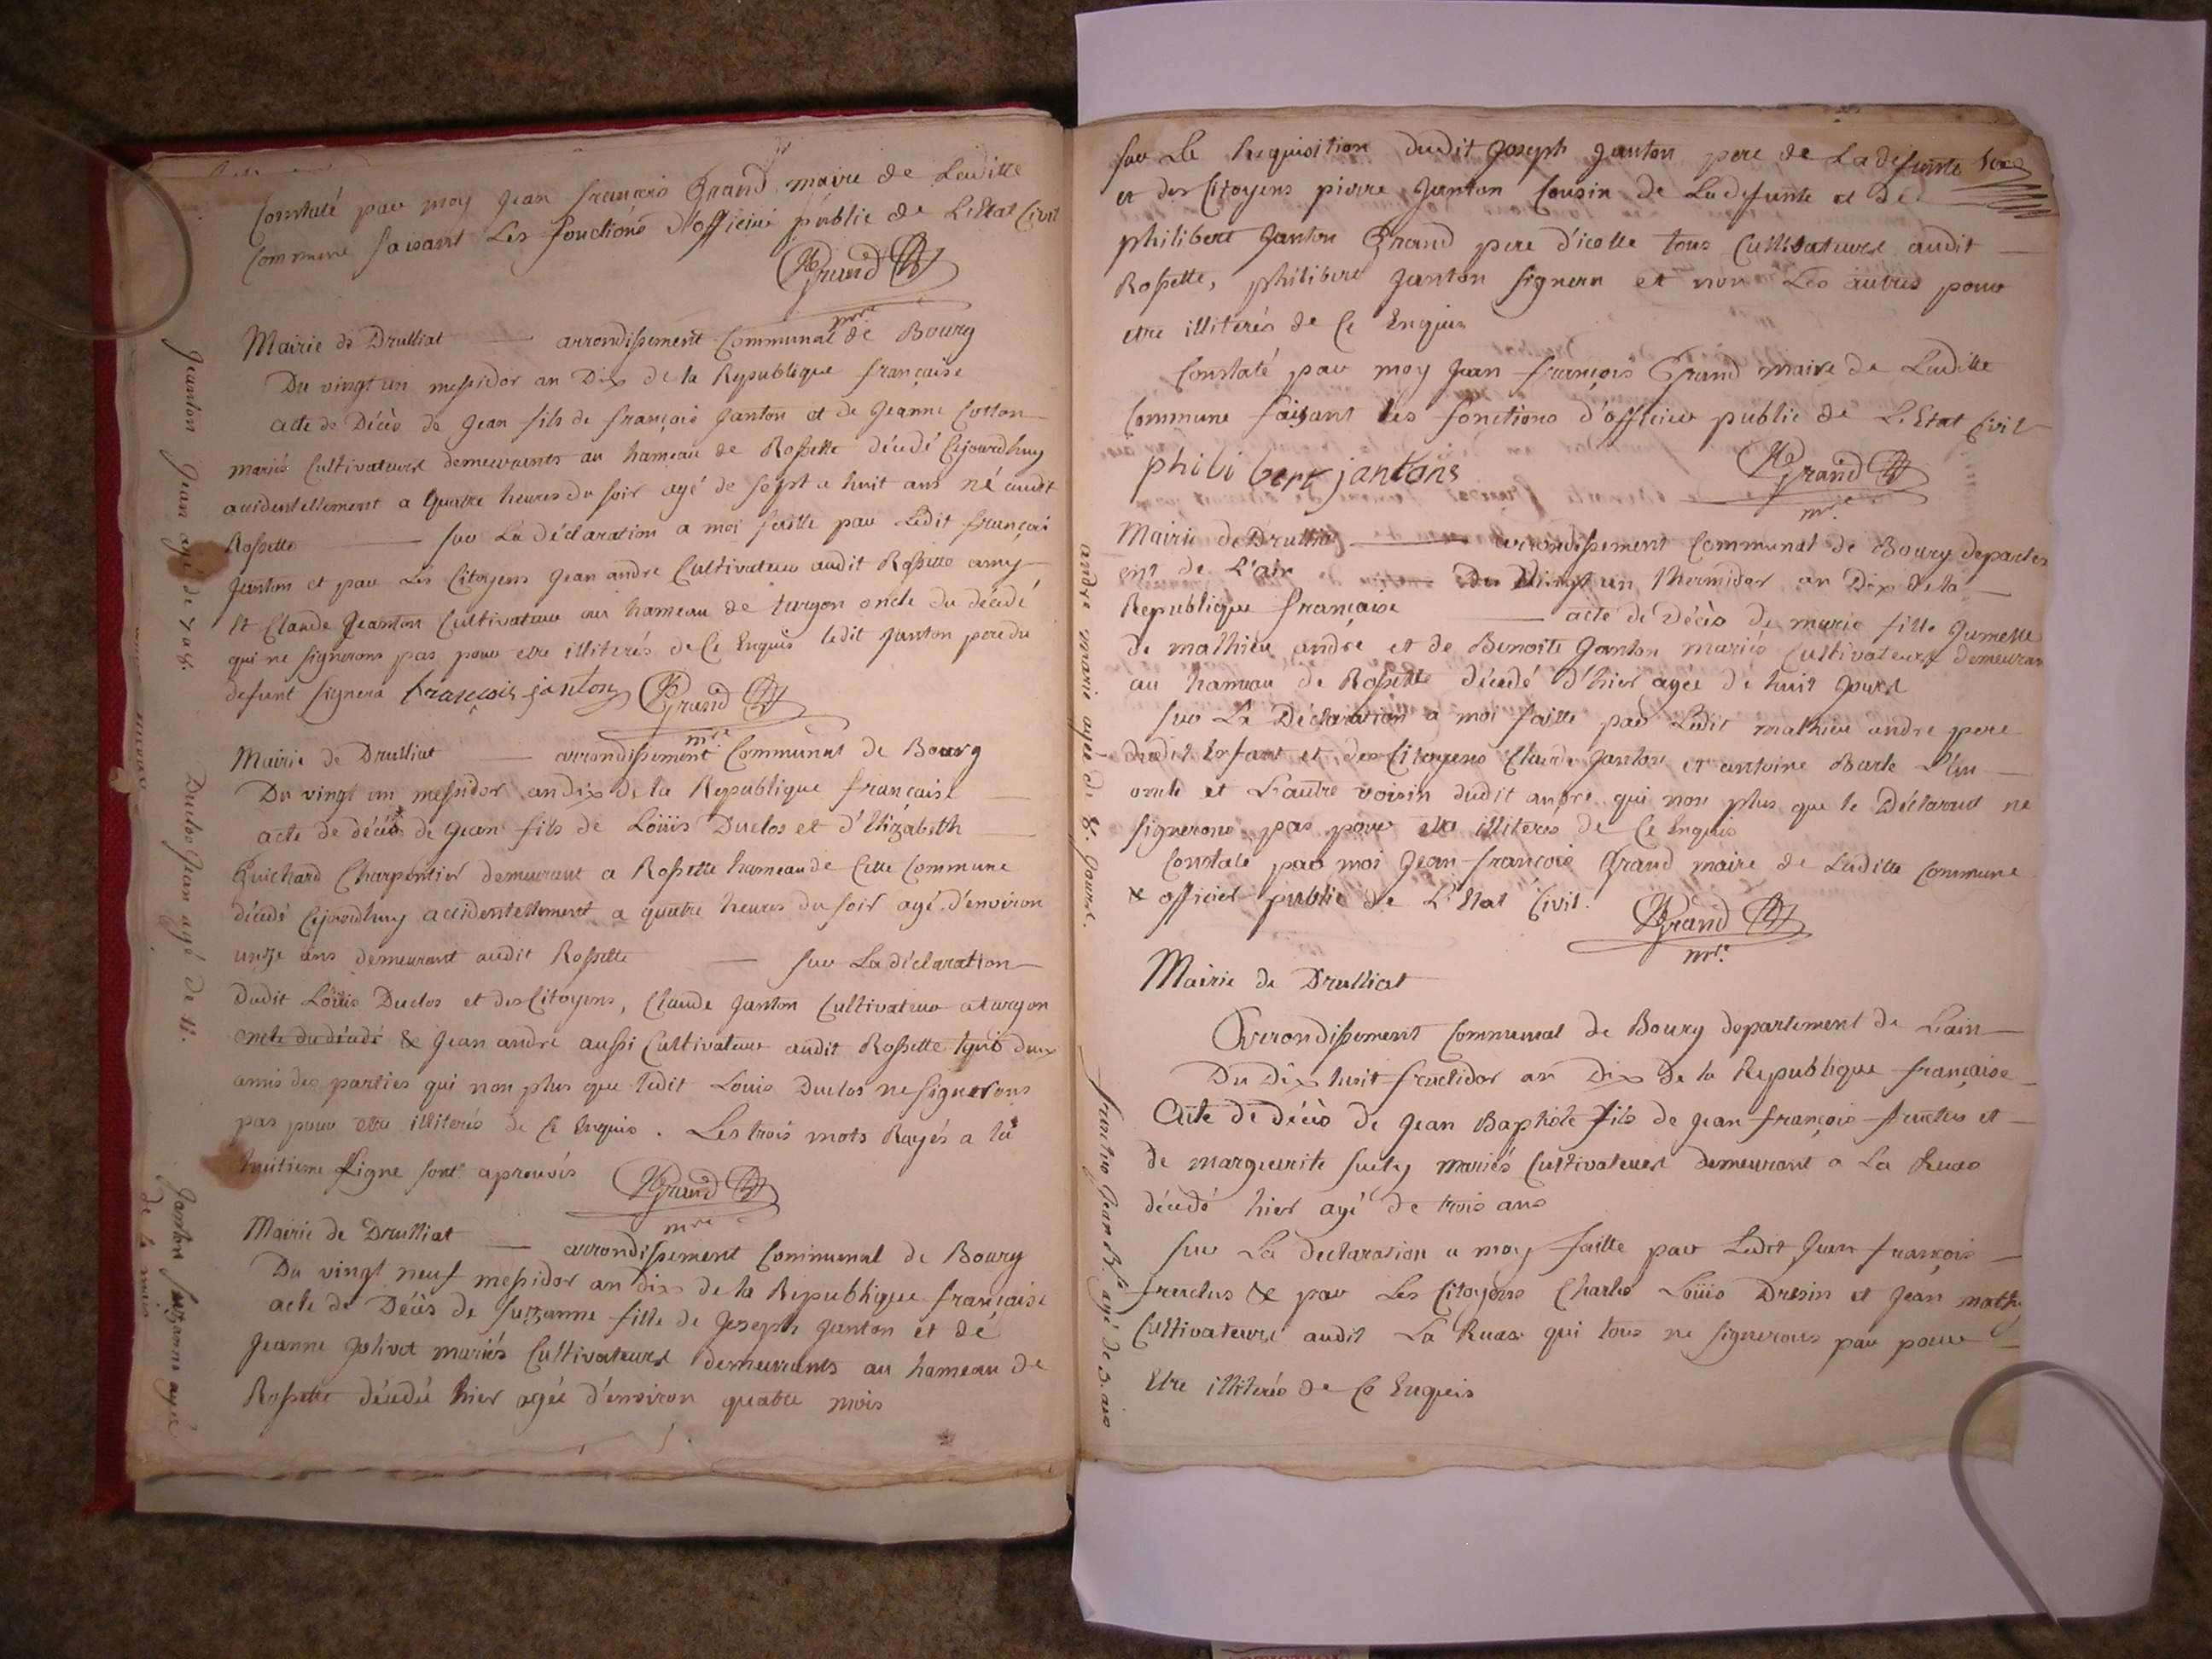 Constaté par moy Jean francois Grand maire de Laditte
Commune faisant Les fonctions d'officier public de L'Etat Civil
JfGrand
mre
Mairie de Drulliat — arrondissement Communal de Bourg
Du vingt un messidor an Dix de la Republique française
acte de Décès de Jean fils de françois Janton et de Jeanne Cotton
mariés Cultivateurs demeurants au hameau de Rossette décédé Cejourdhuy
accidentellement a quatre heures du soir agé de sept a huit ans né audit
Rossette — sur La déclaration a moi faitte par Ledit françois
Janton et par Les Citoyens Jean andré Cultivateur audit Rossette amy
et Claude Jeanton Cultivateur au hameau de turgon oncle du décédé
qui ne signerons pas pour etre illiterés de Ce Enquis ledit Janton pere du
defunt signera françois janton JfGrand
mre
Mairie de Drulliat — arrondissement Communal de Bourg
Du vingt un messidor an dix de la Republique française
acte de décès de Jean fils de Loüis Duclos et d'Elizabeth
Guichard Charpentier demeurant a Rossette hameau de Cette Commune
décédé Cejourdhuy accidentellement a quatre heures du soir agé d'environ
unze ans demeurant audit Rossette — sur La déclaration
dudit Loüis Duclos et des Citoyens, Claude Janton Cultivateur a turgon
oncle du décédé & Jean andré aussi Cultivateur audit Rossette tous deux
amis des parties qui non plus que ledit Louis Duclos ne signerons
pas pour etre illiterés de Ce Enquis. Les trois mots Rayés a la
huitieme Ligne sont aprouvés JfGrand
mre
Mairie de Drulliat — arrondissement Communal de Bourg
Du vingt neuf messidor an dix de la Republique française
acte de Décès de Suzanne fille de Joseph Janton et de
Jeanne Jolivet mariés Cultivateurs demeurants au hameau de
Rossette décédée hier agée d'environ quatre mois
Jeanton Jean agé de 7 a 8.
Duclos Jean agé de 11.
Janton Suzanne agée
de 4 mois
sur La Requisition dudit Joseph Janton pere de La defunte
et des Citoyens pierre Janton Cousin de La defunte et De
philibert Janton Grand pere d'icelle tous Cultivateurs audit
Rossette, philibert Janton signera et non Les autres pour
etre illiterés de Ce Enquis
Constaté par moy Jean françois Grand maire de Laditte
Commune faisant les fonctions d'officier public de L'Etat Civil
philibert jantons JfGrand
mre
Mairie de Drulliat — arrondissement Communal de Bourg departem
ent de L'ain — Du Vingt un thermidor an Dix de la
Republique française — acte de Décès de marie fille Jumelle
de mathieu andré et de Benoite Janton mariés Cultivateurs demeurant
au hameau de Rossette décédé d'hier agée de huit Jours
sur La Déclaration a moi faitte par Ledit mathieu andré pere
dudit Enfant et des Citoyens Claude Janton et antoine Barle L'un
oncle et L'autre voisin dudit andré qui non plus que le Déclarant ne
signerons pas pour etre illiterés de Ce Enquis
Constaté par moi Jean françois Grand maire de Laditte Commune
& officier public de L'Etat Civil. JfGrand
mre
Mairie de Drulliat
Arrondissement Communal de Bourg departement de L'ain
Du Dix huit fructidor an Dix de la Republique française
Acte de décès de Jean Baptiste fils de Jean françois fructus et
de marguerite mariés Cultivateurs demeurant a La Ruas
décédé hier agé de trois ans
sur La declaration a moy faitte par Ledit Jean françois
fructus & par Les Citoyens Charles Loüis et Jean
Cultivateurs audit La Ruas qui tous ne signerons pas pour
Etre illiterés de Ce Enquis
andré marie agée de 8. Jours.
Jean Bte agé de 3. ans